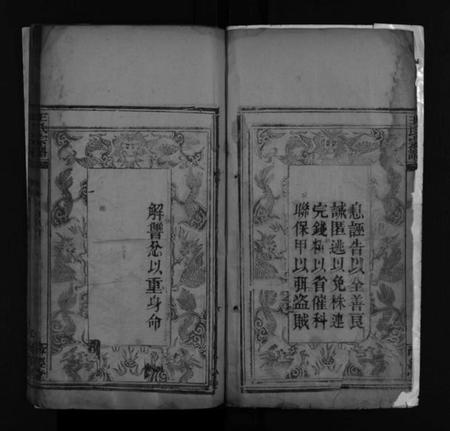 息誣告以全善良
誡匿逃以免株連
完錢粮以省催科
聯保甲以弭盗賊
解讐忿以重身命